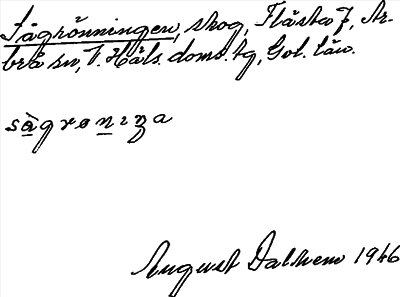 Sågrönningen, skog, Flästa 7, Ar-
brå sn, V. Häls. doms. tg, Gvl. län.
sàgrønıŋa
August Dalhem 1946